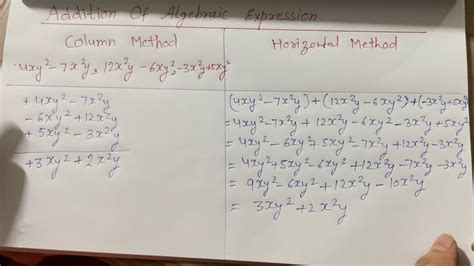 Addition Of Algebraic Expression
Column Method
4xy²-7x²y, 12x²y-6xy², -3x²y+5xy²
+4xy²-7x²y
-6xy²+12x²y
+5xy²-3x²y
+3xy²+2x²y
Horizontal Method
(4xy²-7x²y)+(12x²y-6xy²)+(-3x²y+5xy²
=4xy²-7x²y+12x²y-6xy²-3x²y+5xy²
=4xy²-6xy²+5xy²-7x²y+12x²y-3x²y
=4xy²+5xy²-6xy²+12x²y-7x²y-3x²y
=9xy²-6xy²+12x²y-10x²y
= 3xy²+2x²y